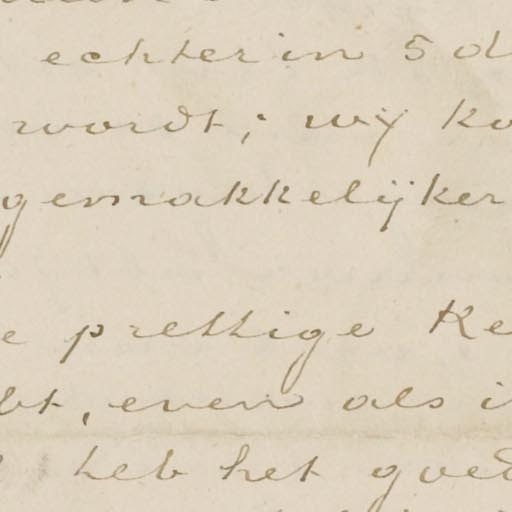 echter in 5 d
wordt; wij ko
gemakkelijker
e prettige Ke
bt, even als i
heb het goed